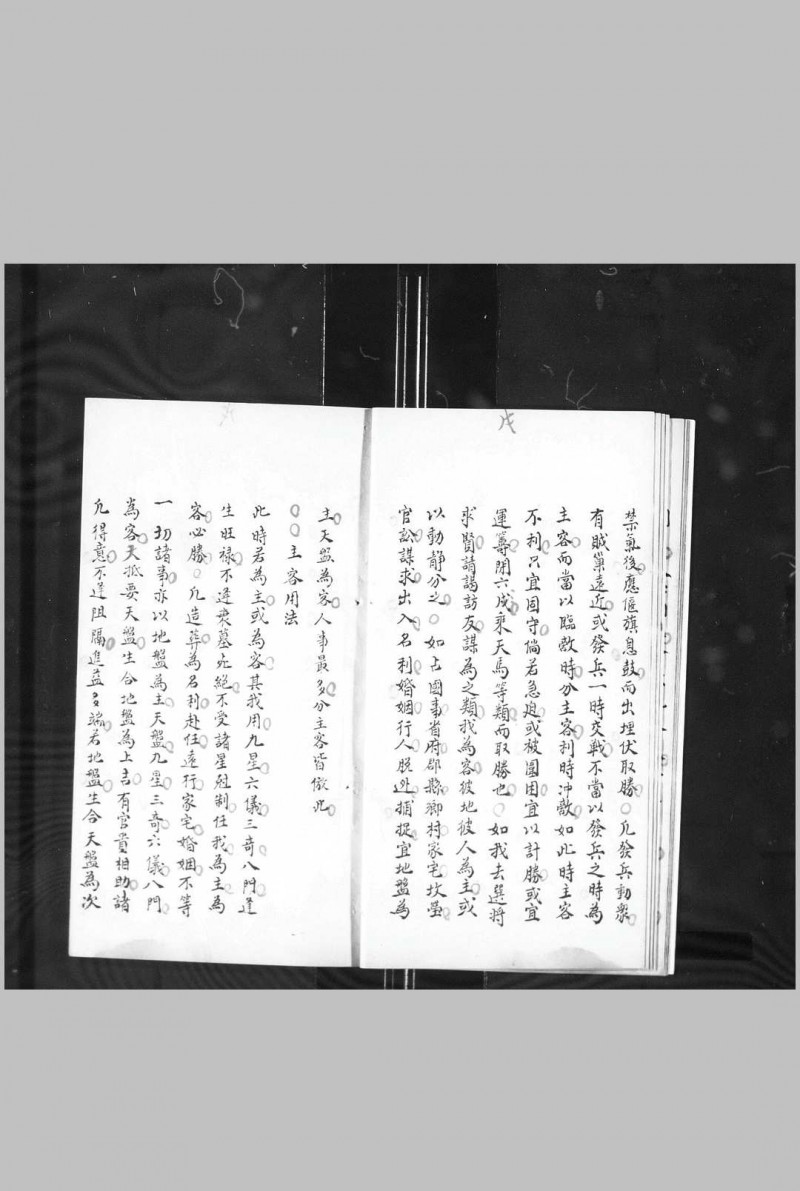 戊
禁氣後應偃旗息鼓而出埋伏取勝○凢發兵動衆
有賊巢遠近或發兵一時交戰不當以發兵之時為
主客而當以臨敵時分主客利時冲敵如此時主客
不利只宜固守倘若急迫或被圍困宜以計勝或宜
運籌閉六戊乘天馬等類而取勝也○如我去選將
求賢請謁訪友謀為之類我為客彼地彼人為主或
以動靜分之○如占國事省府郡縣鄉村家宅坟塋
官訟謀求出入名利婚姻行人脫逃捕捉宜地盤為
主天盤為客人事最多分主客皆倣此
○○主客用法
此時若為主或為客其我用九星六儀三奇八門逢
生旺祿不逢衰墓死絕不受諸星尅制任我為主為
客必勝○凢造葬為名利赴任遠行家宅婚姻不等
一切諸事亦以地盤為主天盤九星三奇六儀八門
為客大抵要天盤生合地盤為上吉有官貴相助諸
凢得意不逢阻隔進益多端若地盤生合天盤為次